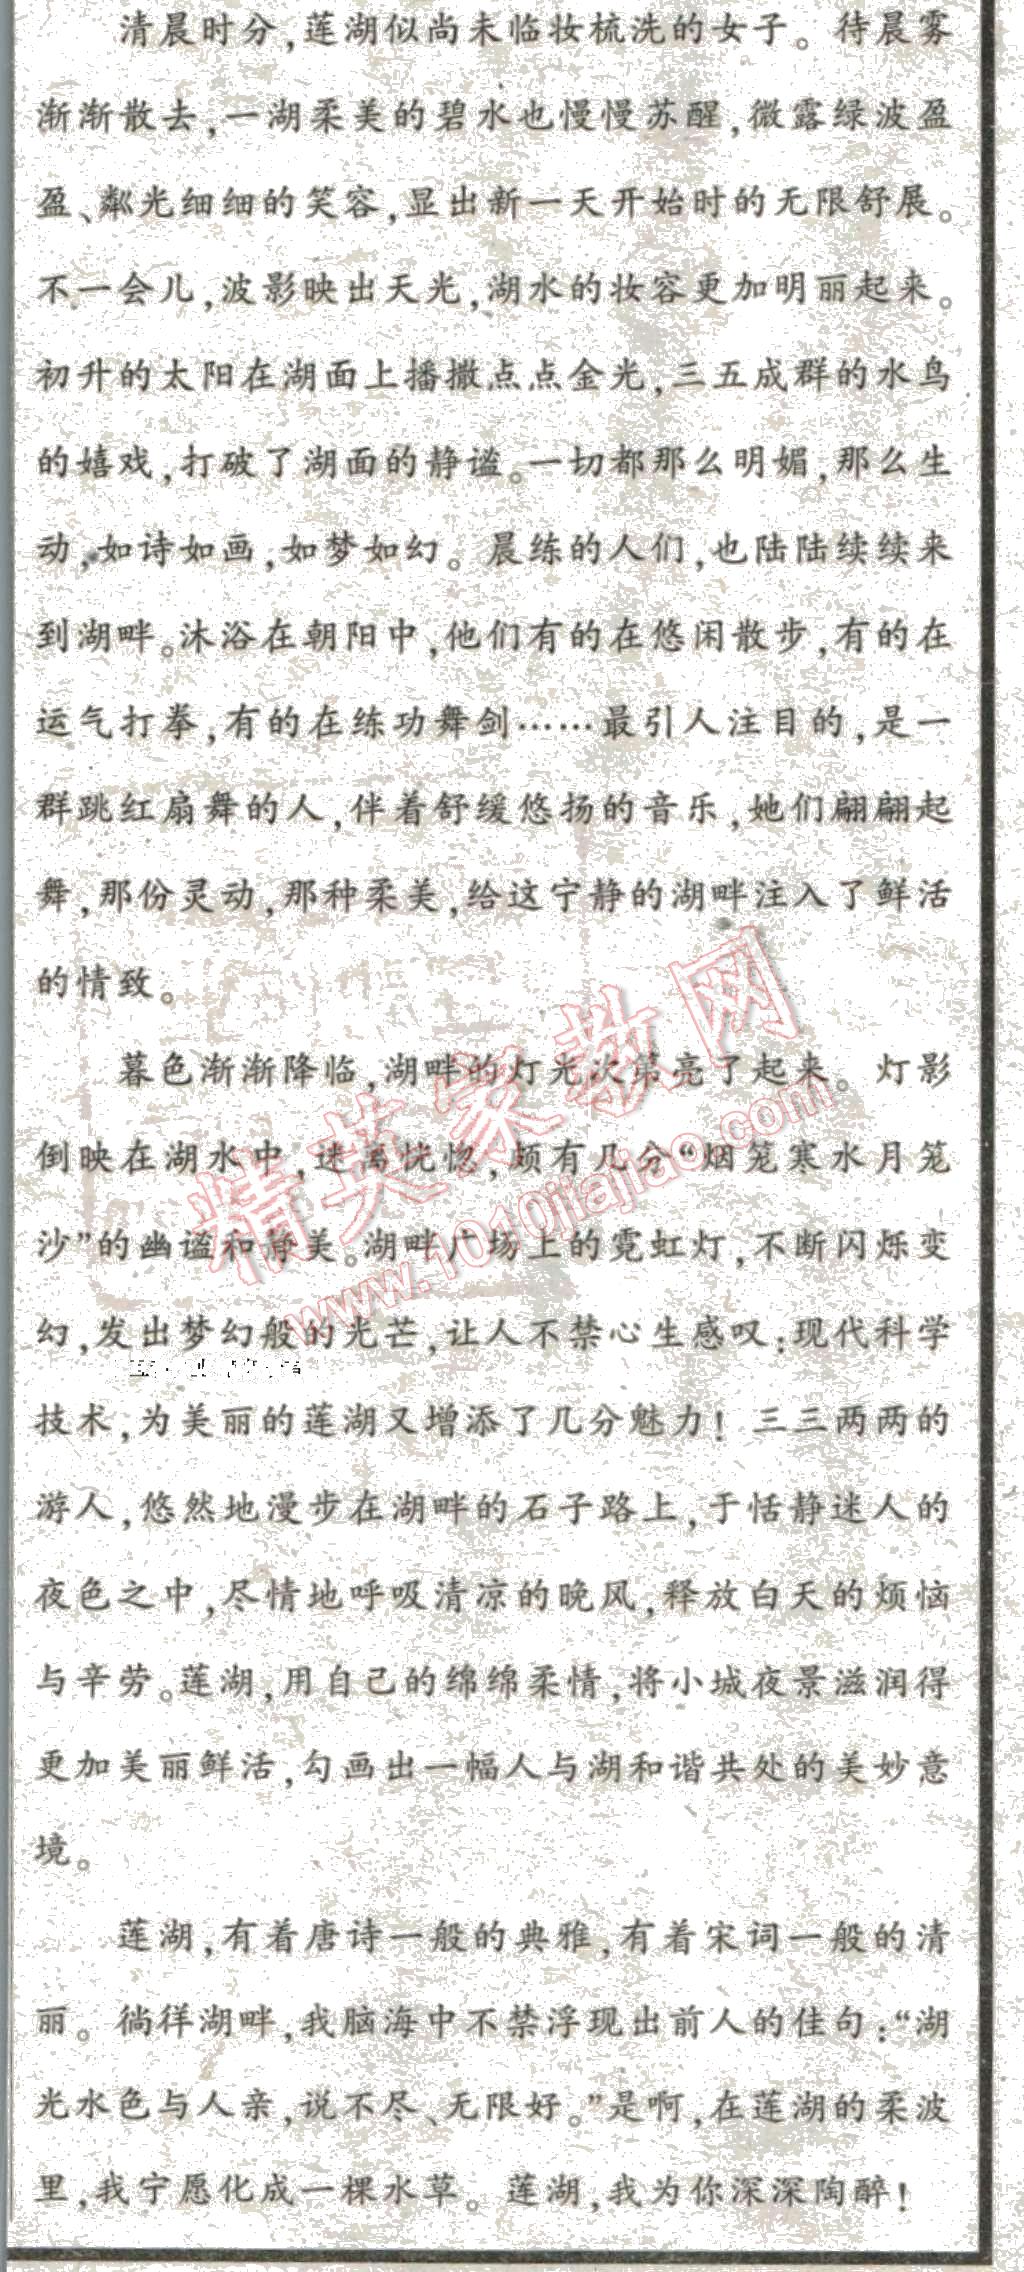 清晨时分,莲湖似尚未临妆梳洗的女子。待晨雾
渐渐散去,一湖柔美的碧水也慢慢苏醒,微露绿波盈
盈、粼光细细的笑容,显出新一天开始时的无限舒展。
不一会儿,波影映出天光,湖水的妆容更加明丽起来。
初升的太阳在湖面上播撒点点金光,三五成群的水鸟
的嬉戏,打破了湖面的静谧。一切都那么明媚,那么生
动,如诗如画,如梦如幻。晨练的人们,也陆陆续续来
到湖畔。沐浴在朝阳中,他们有的在悠闲散步,有的在
运气打拳,有的在练功舞剑……最引人注目的,是一
群跳红扇舞的人,伴着舒缓悠扬的音乐,她们翩翩起
舞,那份灵动,那种柔美,给这宁静的湖畔注入了鲜活
的情致。
暮色渐渐降临,湖畔的灯光次第亮了起来。灯影
倒映在湖水中,迷离恍惚,颇有几分“烟笼寒水月笼
沙”的幽谧和静美。湖畔广场上的霓虹灯,不断闪烁变
幻,发出梦幻般的光芒,让人不禁心生感叹:现代科学
技术,为美丽的莲湖又增添了几分魅力!三三两两的
游人,悠然地漫步在湖畔的石子路上,于恬静迷人的
夜色之中,尽情地呼吸清凉的晚风,释放白天的烦恼
与辛劳。莲湖,用自己的绵绵柔情,将小城夜景滋润得
更加美丽鲜活,勾画出一幅人与湖和谐共处的美妙意
境。
莲湖,有着唐诗一般的典雅,有着宋词一般的清
丽。徜徉湖畔,我脑海中不禁浮现出前人的佳句:“湖
光水色与人亲,说不尽、无限好。”是啊,在莲湖的柔波
里,我宁愿化成一棵水草。莲湖,我为你深深陶醉!
精英家教网
www.1010jiajiao.com